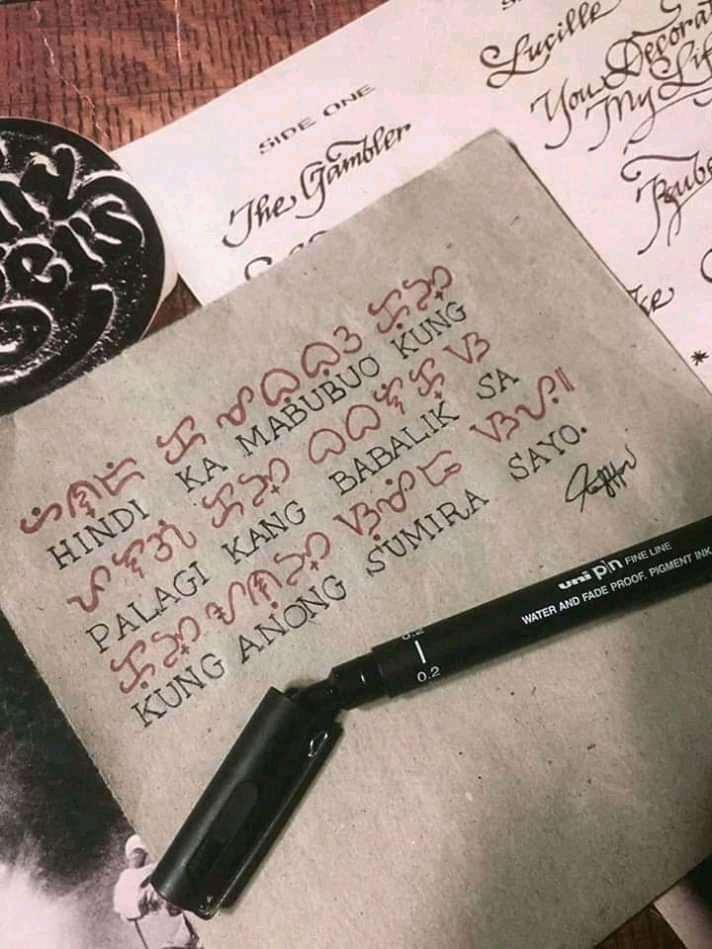 Lucille
You
My
SIDE ONE
The Gambler
ᜑᜒᜈ᜔ᜇᜒ ᜃ ᜋᜊᜓᜊᜓᜂ ᜃᜓᜅ᜔
HINDI KA MABUBUO KUNG
ᜉᜎᜄᜒ ᜃᜅ᜔ ᜊᜊᜎᜒᜃ᜔ ᜐ
PALAGI KANG BABALIK SA
ᜃᜓᜅ᜔ ᜀᜈᜓᜅ᜔ ᜐᜓᜋᜒᜇ ᜐᜌᜓ᜶
KUNG ANONG SUMIRA SAYO.
uni pin FINE LINE
WATER AND FADE PROOF. PIGMENT INK
0.2